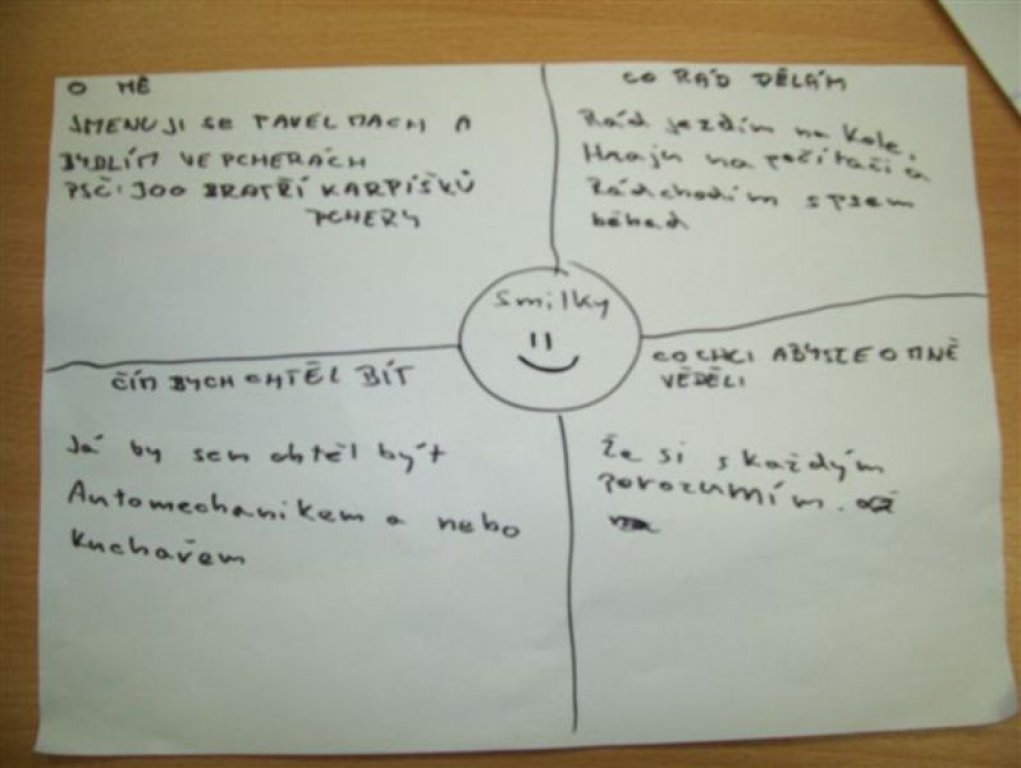 O MĚ
JMENUJI SE PAVEL MACH A
BYDLÍM VE PCHERÁCH
PSČ: 300 BRATŘÍ KARPÍŠKŮ
PCHERY
CO RÁD DĚLÁM
Rád jezdím na kole.
Hraju na počítači a
Rád chodím s psem
běhad
Smilky
ČÍM BYCH CHTĚL BÍT
Já by sem chtěl být
Automechanikem a nebo
kuchařem
CO CHCI ABYSTE O MNĚ
VĚDĚLI
Že si s každým
porozumím.